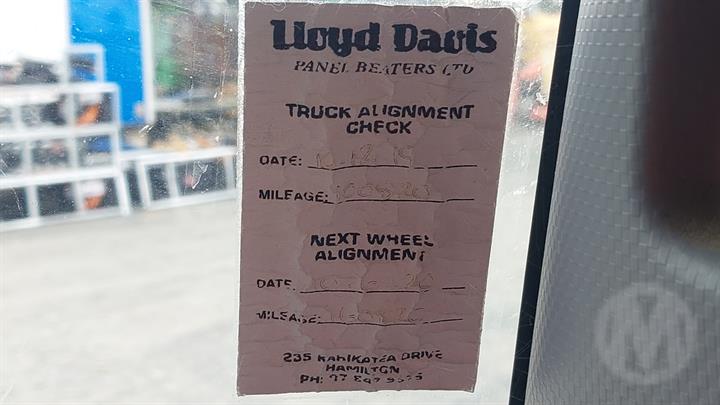 Lloyd Davis
PANEL BEATERS LTD
TRUCK ALIGNMENT
CHECK
DATE: 10.12.19
MILEAGE:
NEXT WHEEL
ALIGNMENT
DATE
MILEAGE:
235 KAHIKATEA DRIVE
HAMILTON
PH: 07 847